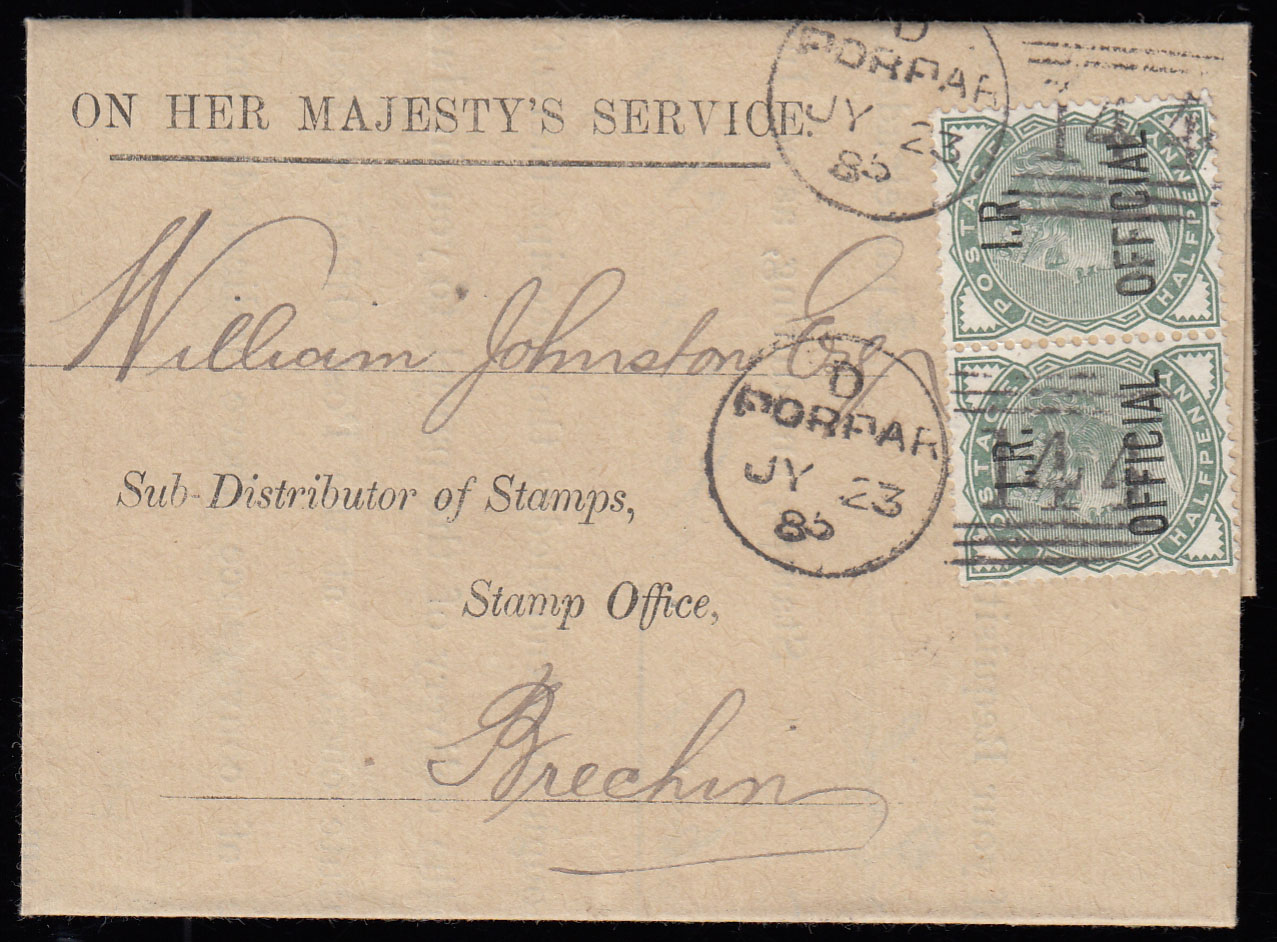 ON HER MAJESTY'S SERVICE.
D
FORFAR
JY 23
83
144
POSTAGE
HALFPENNY
I.R.
OFFICIAL
William Johnston Esq
D
FORFAR
JY 23
83
144
POSTAGE
HALFPENNY
I.R.
OFFICIAL
Sub-Distributor of Stamps,
Stamp Office,
Brechin